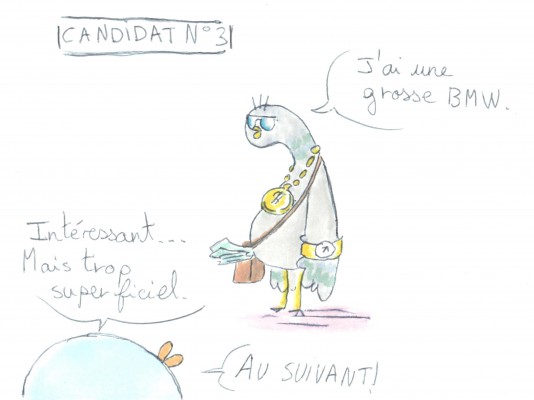 CANDIDAT N°3
J'ai une
grosse BMW.
Intéressant...
Mais trop
superficiel.
AU SUIVANT!